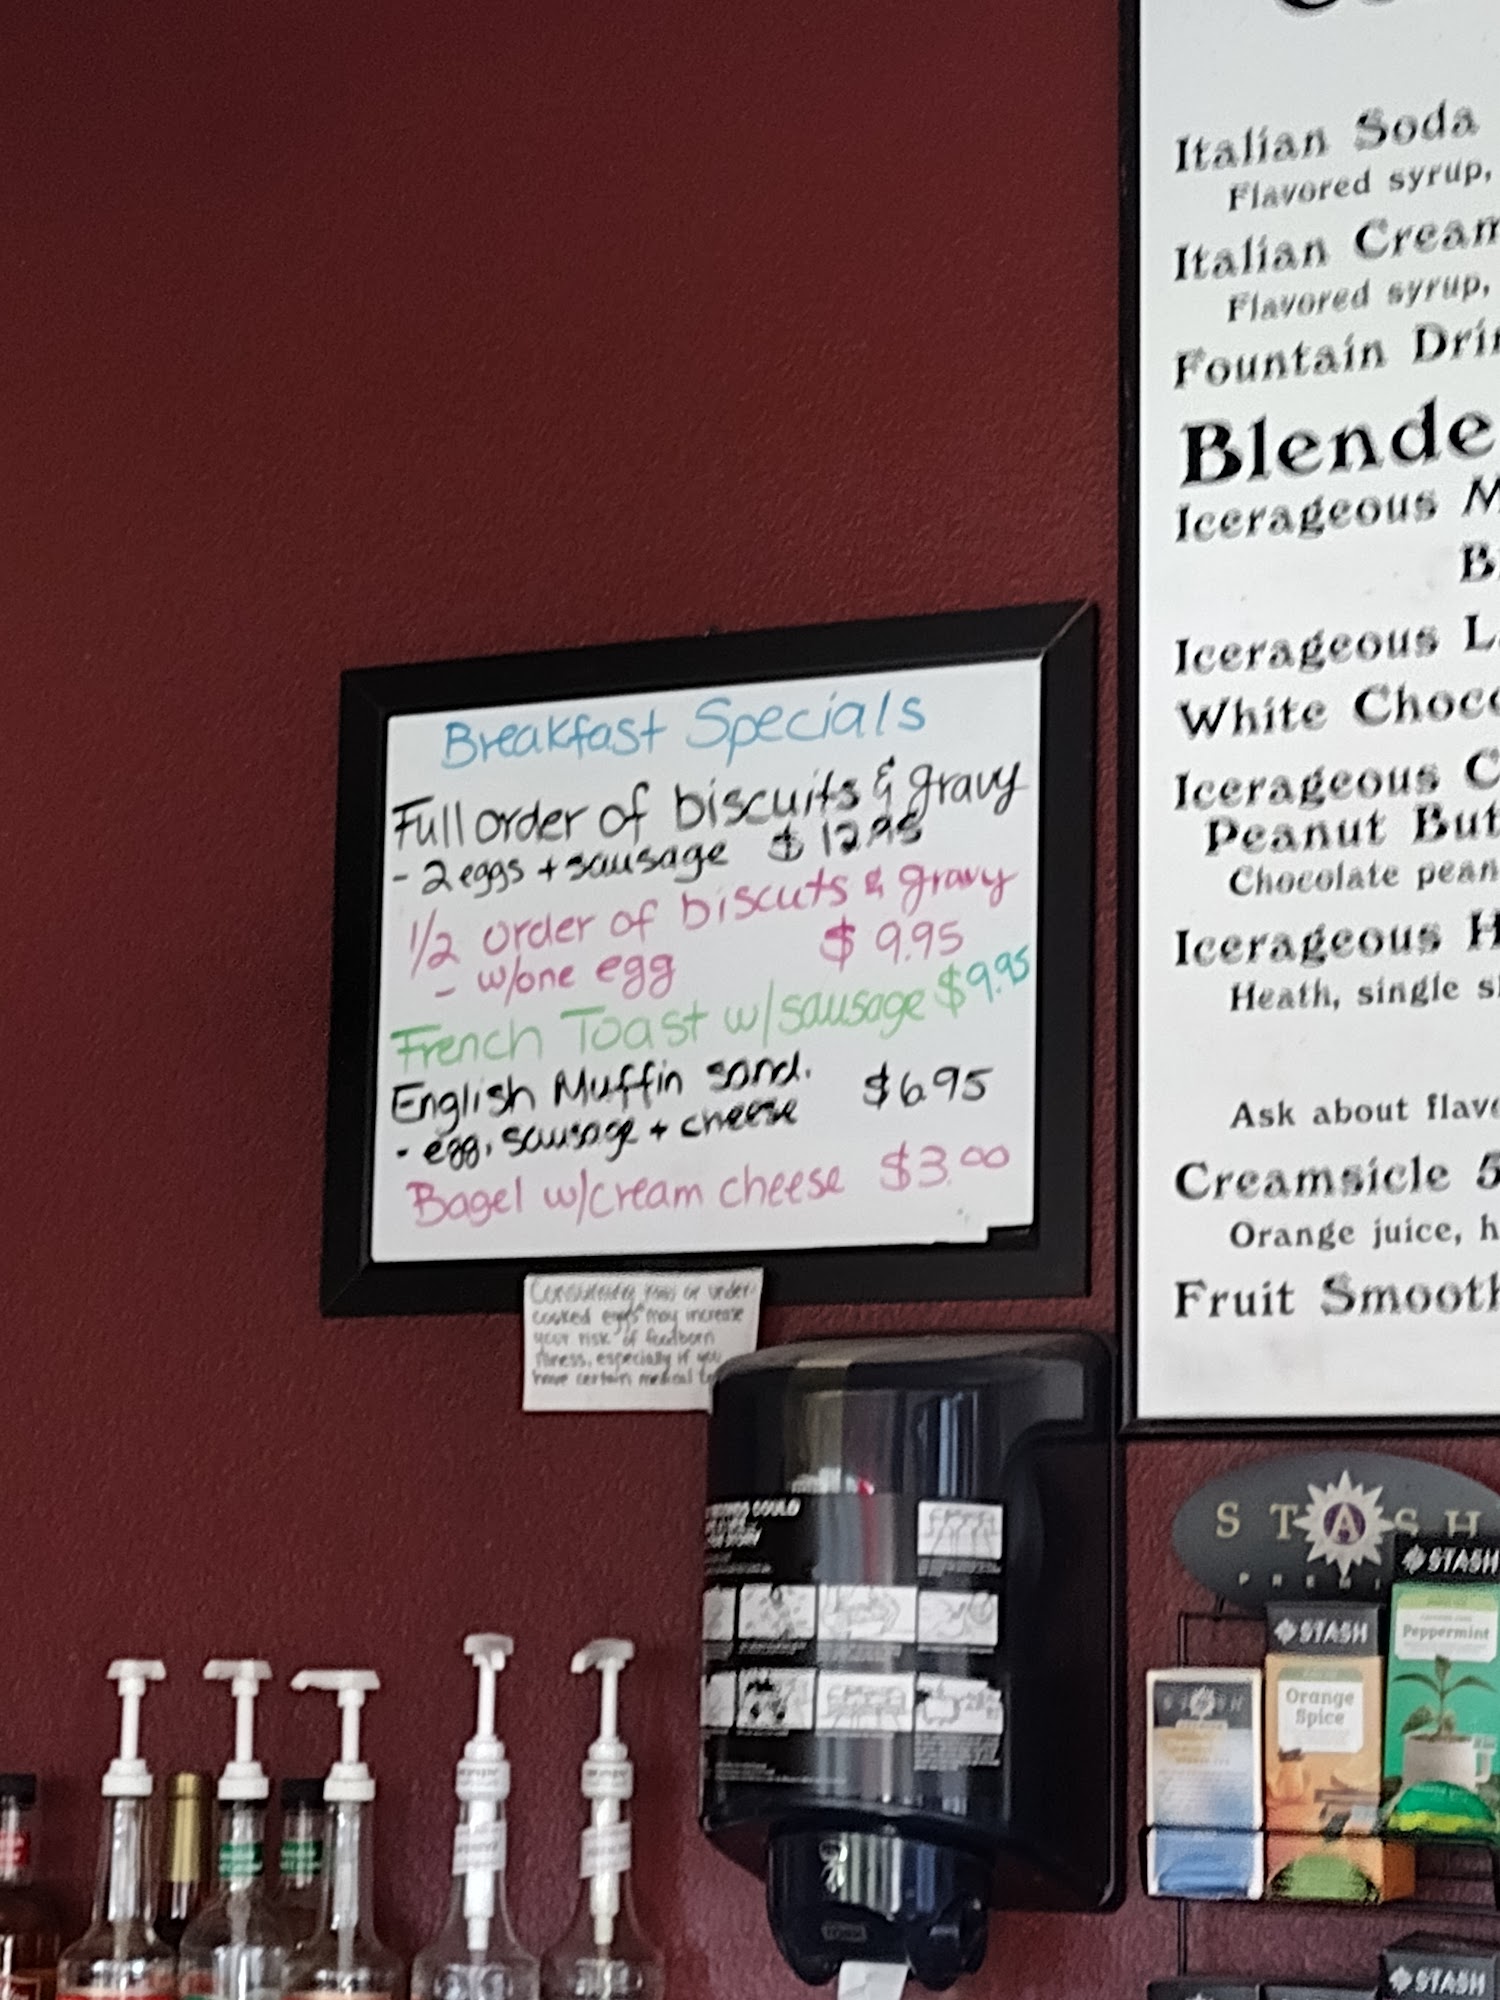 Breakfast Specials
Full order of biscuits & gravy
- 2 eggs + sausage $12.95
1/2 order of biscuts & gravy
- w/one egg $9.95
French Toast w/sausage $9.95
English Muffin sand. $6.95
- egg, sausage + cheese
Bagel w/cream cheese $3.00
Consuming raw or under
cooked eggs may increase
your risk of foodborn
illness, especially if you
have certain medical
Italian Soda
Flavored syrup,
Italian Cream
Flavored syrup,
Fountain Drin
Blende
Icerageous M
Icerageous La
White Choco
Icerageous C
Peanut But
Chocolate pean
Icerageous H
Heath, single s
Ask about flavo
Creamsicle 5
Orange juice, h
Fruit Smooth
STASH
PREMI
STASH
Peppermint
STASH
Orange
Spice
STASH
STASH